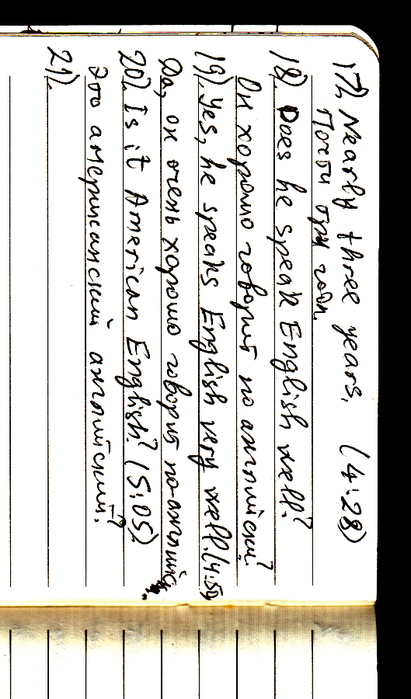 17). Nearly three years. (4:28)
Почти три года.
18). Does he speak English well?
Он хорошо говорит по английски?
19). Yes, he speaks English very well. (4:50)
Да, он очень хорошо говорит по-английс
20). Is it American English? (5:05).
Это американский английский. -?
21).